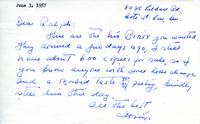 June 3, 1957
Dear Ralph:
Here are the two Birds you wanted.
They arrived a few days ago, & still
have about 600 copies for sale, so if
you know anyone with some loose change
and a morbid taste in poetry, kindly
steer him this way.
All the best,